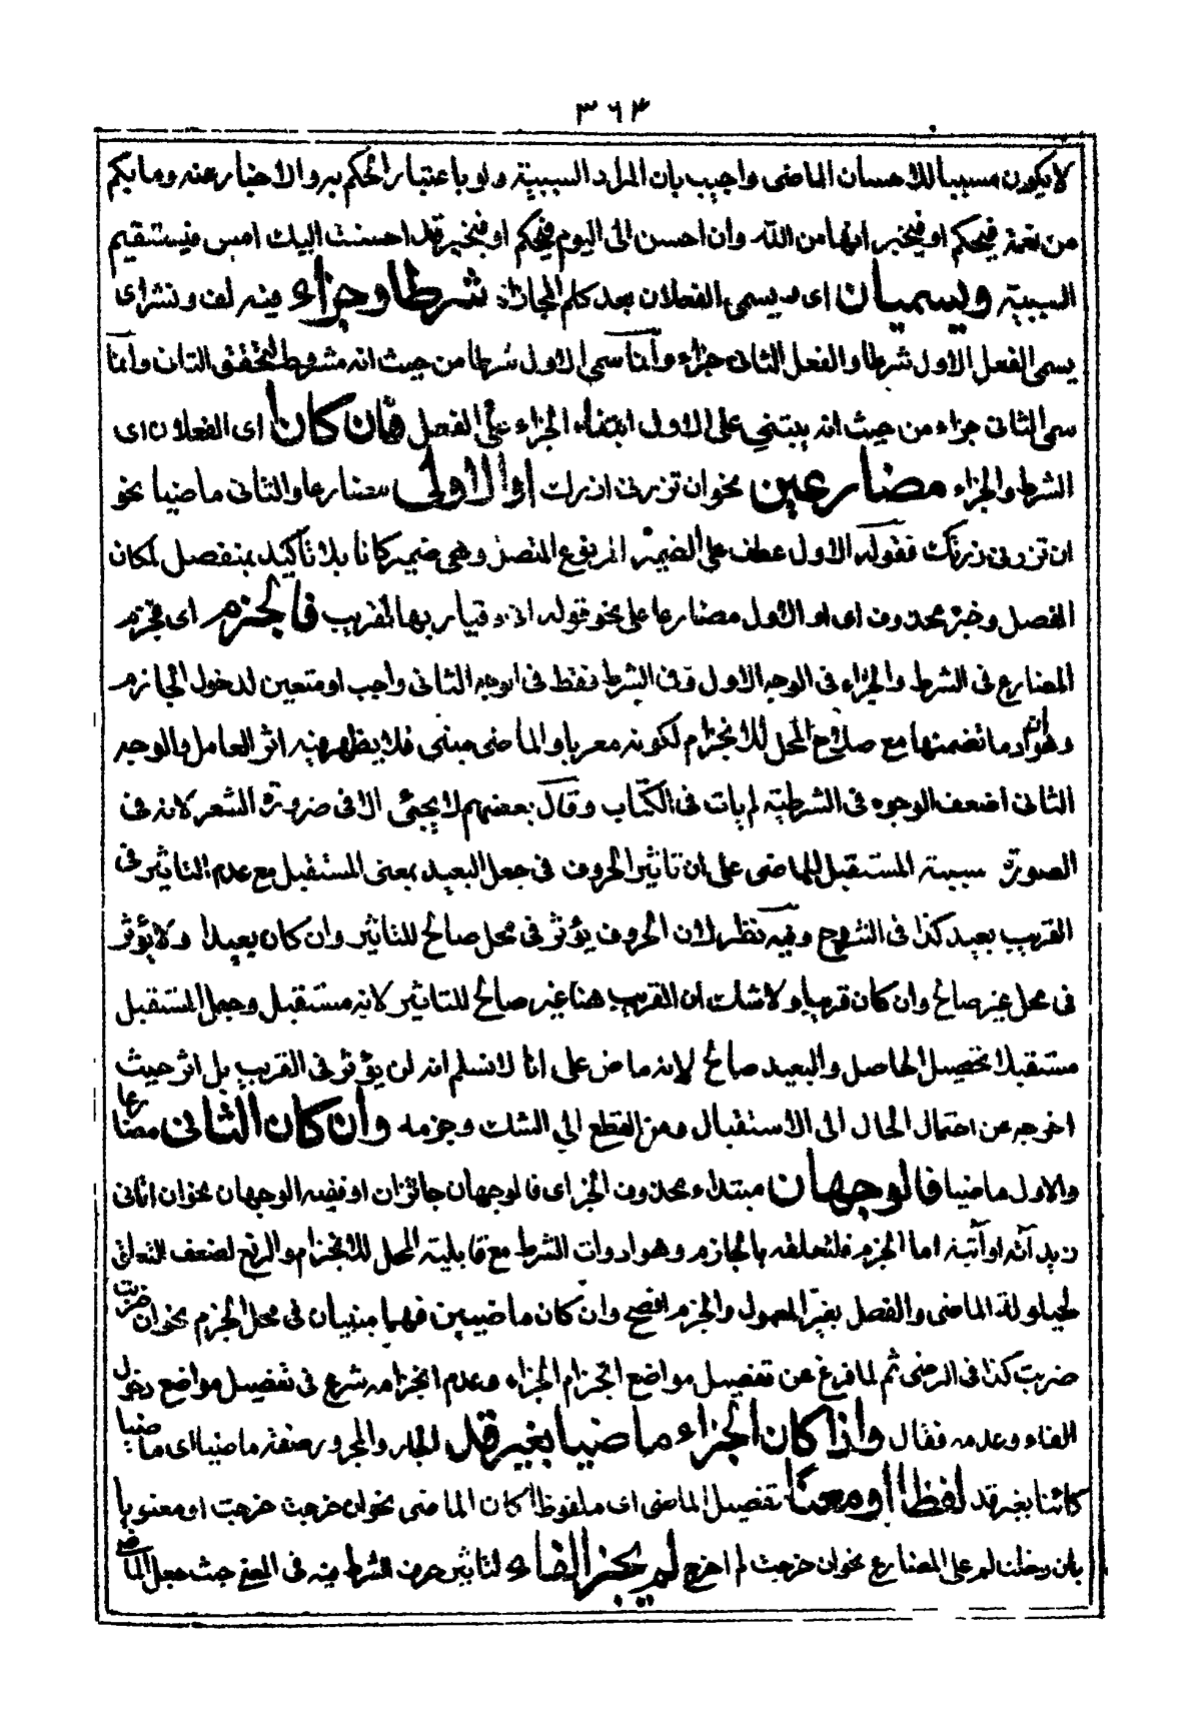 ٣٦٤
لا يكون مسببا للاحسان الماضى واجيب بان المراد السببية ولو باعتبار الحكم به والاخبار عنه وما بكم
من نعمة فيحكم او فيخبر انها من الله وان احسن الى اليوم فيحكم او فيخبر قد احسنت اليك امس فيستقيم
السببية ويسميان اى يسمى الفعلان بعد كلم المجازاة شرطا وجزاء فيه لف ونشر اى
يسمى الفعل الاول شرطا والفعل الثانى جزاء وانما سمى الاول شرطا من حيث انه مشروط لتحقق الثانى وانما
سمى الثانى جزاء من حيث انه يبتنى على الاول ابتناء الجزاء على الفعل فان كانا اى الفعلان اى
الشرط والجزاء مضارعين نحو ان تزرنى ازرك او الاول مضارعا والثانى ماضيا نحو
ان تزرنى زرتك فقوله الاول عطف على الضمير المرفوع المتصل وهى ضمير كانا بلا تأكيد بمنفصل لمكان
الفصل وخبره محذوف اى او الاول مضارعا على نحو قوله انى وقيار بها لغريب فالجزم اى فجزم
المضارع فى الشرط والجزاء فى الوجه الاول وفى الشرط فقط فى الوجه الثانى واجب او متعين لدخول الجازم
وهو ان وما تضمنها مع صلاح المحل للانجزام لكونه معربا والماضى مبنى فلا يظهر فيه اثر العامل والوجه
الثانى اضعف الوجوه فى الشرطية لم يات فى الكتاب وقال بعضهم لا يجئ الا فى ضرورة الشعر لانه فى
الصورة سببية المستقبل للماضى على ان تاثير الحروف فى جعل البعيد بمعنى المستقبل مع عدم التاثير فى
القريب بعيد كذا فى الشروح وفيه نظر لان الحروف يؤثر فى محل صالح للتاثير وان كان بعيدا ولا يؤثر
فى محل غير صالح وان كان قريبا ولا شك ان القريب هنا غير صالح للتاثير لانه مستقبل وجعل المستقبل
مستقبلا تحصيل الحاصل والبعيد صالح لانه ماض على انا لا نسلم انه لن يؤثر فى القريب بل اثر حيث
اخرجه عن احتمال الحال الى الاستقبال ومن القطع الى الشك وجزمه وان كان الثانى مضارعا
والاول ماضيا فالوجهان مبتداء محذوف الخبر اى فالوجهان جائزان او ففيه الوجهان نحو ان اتانى
زيد آته او آتيه اما الجزم فلتعلقه بالجازم وهو ادوات الشرط مع قابلية المحل للانجزام والرفع لضعف التعلق
لحيلولة الماضى والفصل بغير المعمول والجزم افصح وان كان ماضيين فهما مبنيان فى محل الجزم نحو ان ضربت
ضربت كذا فى الرضى ثم لما فرغ عن تفصيل مواضع انجزام الجزاء وعدم انجزامه شرع فى تفصيل مواضع دخول
الفاء وعدمه فقال واذا كان الجزاء ماضيا بغير قد الجار والمجرور صفة ماضيا اى ماضيا
كائنا بغير قد لفظا او معنًا تفصيل الماضى اى ملفوظا كان الماضى نحو ان خرجت خرجت او معنويا
بان دخلت لم على المضارع نحو ان خرجت لم اخرج لم يجز الفاء لتاثير حرف الشرط فيه فى المعنى حيث جعل الماضى